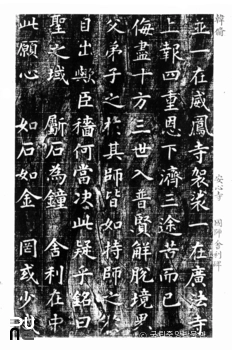 韓脩
安心寺
並一在威鳳寺袈裟一在廣法寺
上報四重恩下濟三途苦而已
盡十方三世入普賢解脫境界
父弟子之於其師皆如持師之
自出歟臣穡何當決此疑乎銘曰
聖之域 斲石為鐘 舍利在中
此願心 如石如金 罔或少
국립중앙박물관